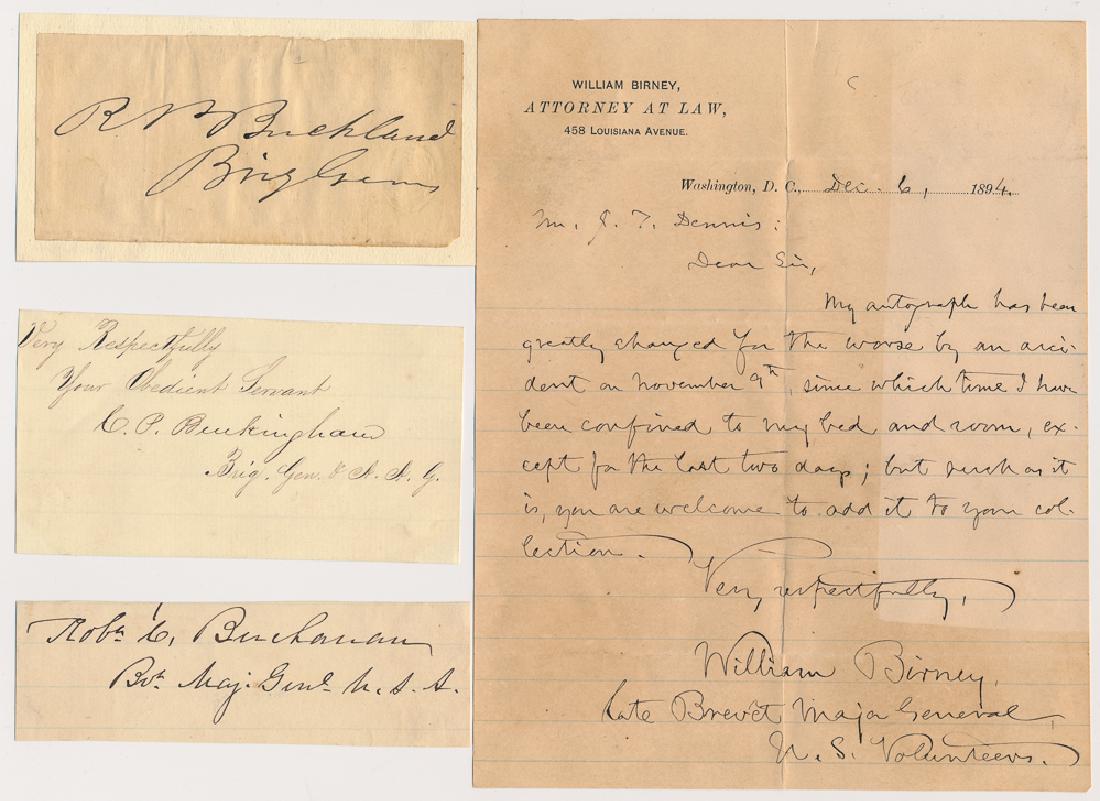 R. P. Buckland
Brig Genl
Very Respectfully
Your Obedient Servant
C. P. Buckingham
Brig. Gen. & A. A. G.
Robt. C. Buchanan
Bvt. Maj. Genl. U. S. A.
WILLIAM BIRNEY,
ATTORNEY AT LAW,
458 LOUISIANA AVENUE.
Washington, D. C., Dec. 6, 1894.
Mr. J. T. Dennis:
Dear Sir,
My autograph has been
greatly changed for the worse by an acci-
dent on November 9th, since which time I have
been confined to my bed and room, ex-
cept for the last two days; but such as it
is, you are welcome to add it to your col-
lection.
Very respectfully,
William Birney,
late Brevet Major General,
U. S. Volunteers.